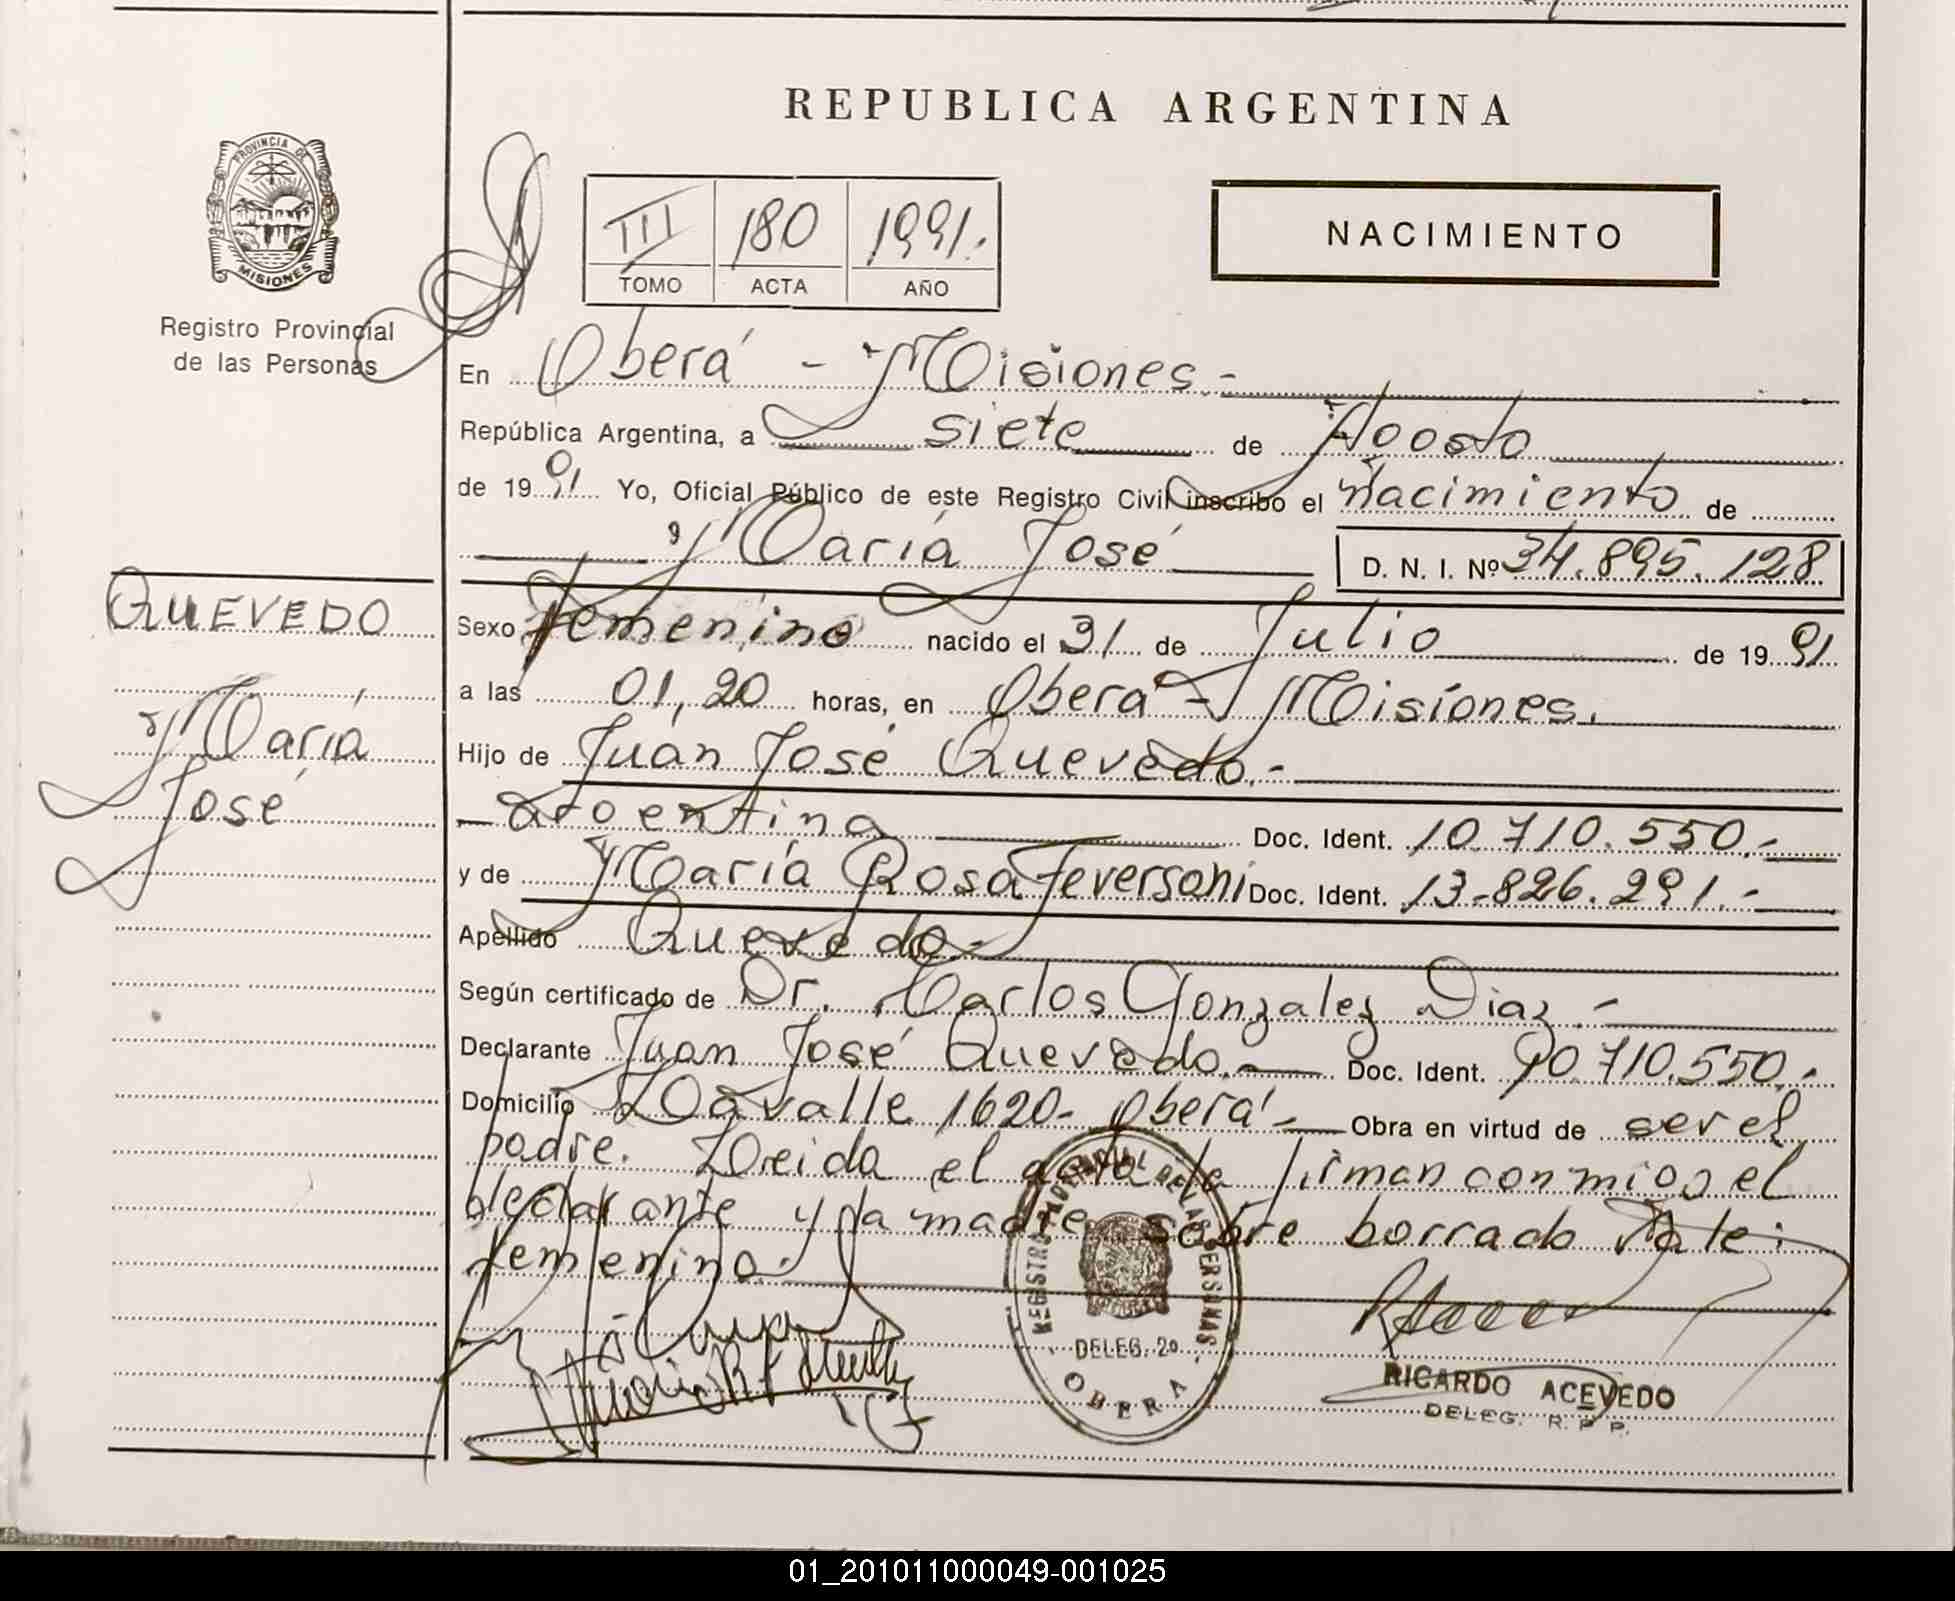 REPUBLICA ARGENTINA
PROVINCIA DE
MISIONES
Registro Provincial
de las Personas
III 180 1991.
TOMO ACTA AÑO
NACIMIENTO
En Oberá - Misiones -
República Argentina, a siete de Agosto
de 1991 Yo, Oficial Público de este Registro Civil inscribo el nacimiento de
María José D. N. I. Nº 34.895.128
QUEVEDO
María
José
Sexo femenino nacido el 31 de Julio de 1991
a las 01,20 horas, en Oberá - Misiones.
Hijo de Juan José Quevedo.-
argentina Doc. Ident. 10.710.550.-
y de María Rosa Feversani Doc. Ident. 13-826.291.-
Apellido Quevedo.-
Según certificado de Dr. Carlos Gonzalez Diaz.-
Declarante Juan José Quevedo.- Doc. Ident. 10.710.550.-
Domicilio Lavalle 1620- Oberá- Obra en virtud de ser el
padre. Leida el acta la firman conmigo el
declarante y la madre sobre borrado Vale:
femenino.
REGISTRO PROVINCIAL DE LAS PERSONAS
DELEG. 2a.
OBERA
RICARDO ACEVEDO
DELEG. R. P. P.
01_201011000049-001025